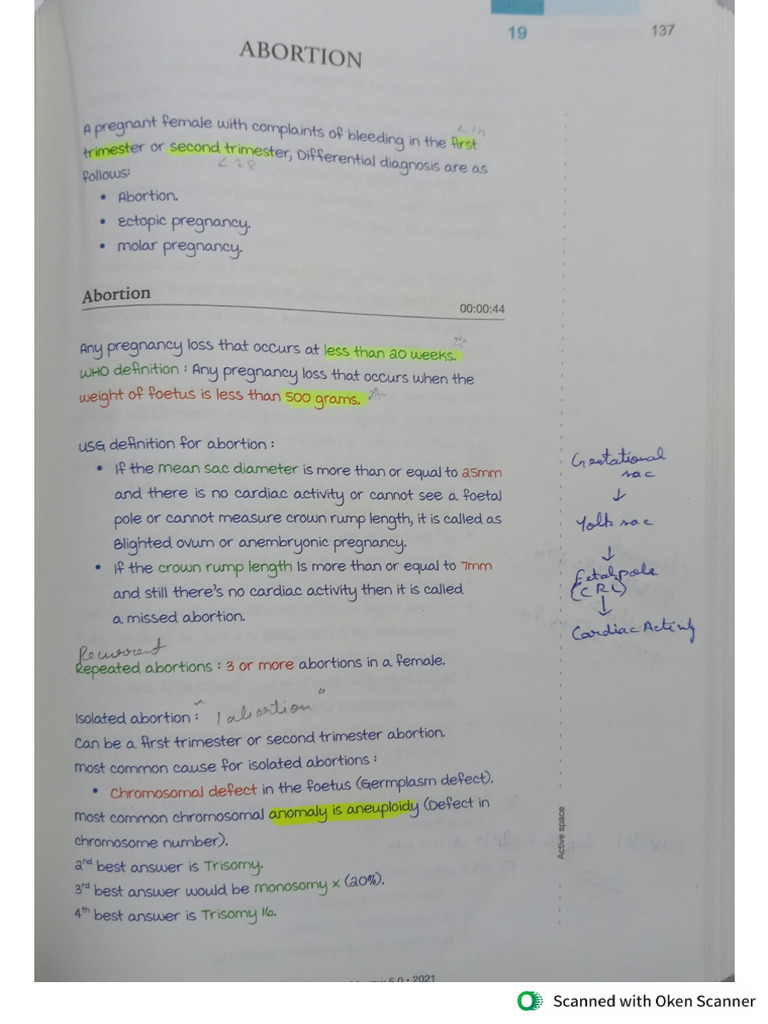 19
137
ABORTION
A pregnant female with complaints of bleeding in the first
trimester or second trimester, Differential diagnosis are as
< 28
follows:
• Abortion.
• Ectopic pregnancy.
• molar pregnancy.
Abortion
00:00:44
Any pregnancy loss that occurs at less than 20 weeks.
WHO definition : Any pregnancy loss that occurs when the
weight of foetus is less than 500 grams.
USG definition for abortion :
• If the mean sac diameter is more than or equal to 25mm
and there is no cardiac activity or cannot see a foetal
pole or cannot measure crown rump length, it is called as
Blighted ovum or anembryonic pregnancy.
• If the crown rump length is more than or equal to 7mm
and still there's no cardiac activity then it is called
a missed abortion.
Gestational
sac
↓
Yolk sac
↓
Fetal pole
(CRL)
↓
Cardiac Activity
Recurrent
Repeated abortions : 3 or more abortions in a female.
Isolated abortion : " 1 abortion "
Can be a first trimester or second trimester abortion.
most common cause for isolated abortions :
• Chromosomal defect in the foetus (Germplasm defect).
most common chromosomal anomaly is aneuploidy (Defect in
chromosome number).
2nd best answer is Trisomy.
3rd best answer would be monosomy x (20%).
4th best answer is Trisomy 16.
Active space
5.0 • 2021
Scanned with Oken Scanner